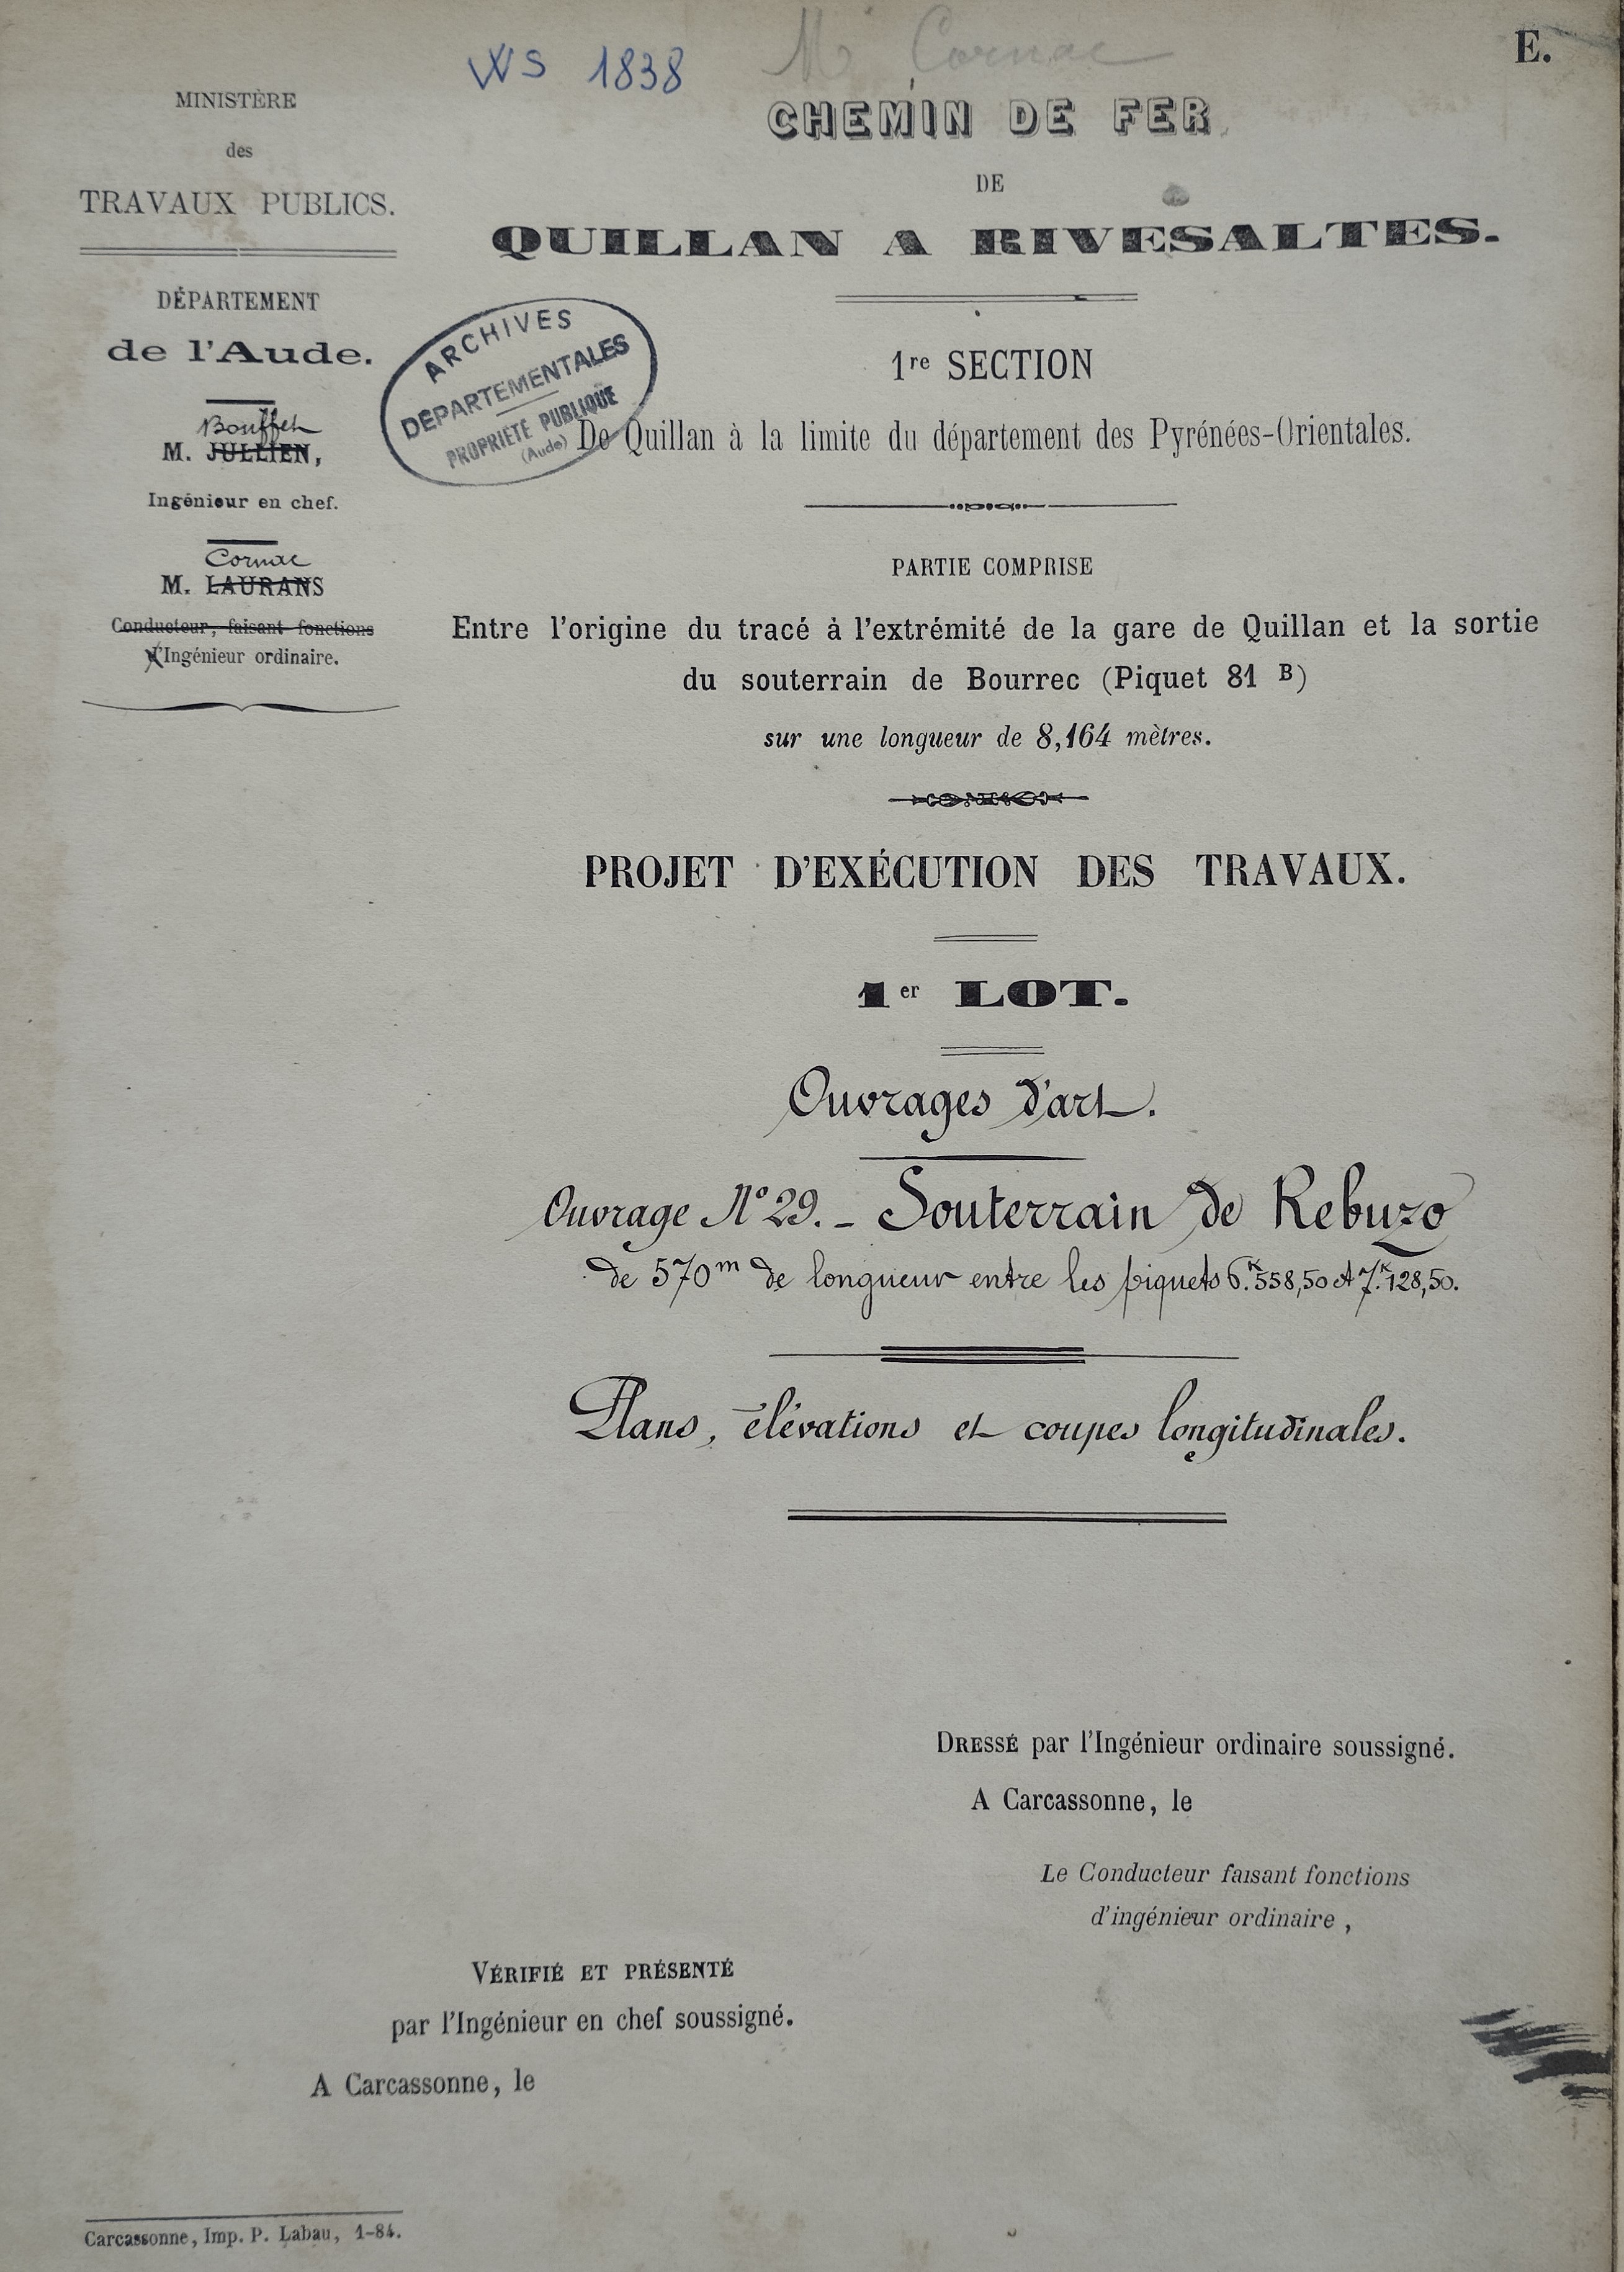 WS 1838
M. Cornac
E.
MINISTÈRE
des
TRAVAUX PUBLICS.
DÉPARTEMENT
de l'Aude.
Bouffet
M. JULLIEN,
Ingénieur en chef.
Cornac
M. LAURANS
Conducteur, faisant fonctions
d'Ingénieur ordinaire.
CHEMIN DE FER
DE
QUILLAN A RIVESALTES.
ARCHIVES
DEPARTEMENTALES
PROPRIÉTÉ PUBLIQUE
(Aude)
1re SECTION
De Quillan à la limite du département des Pyrénées-Orientales.
PARTIE COMPRISE
Entre l'origine du tracé à l'extrémité de la gare de Quillan et la sortie
du souterrain de Bourrec (Piquet 81 B)
sur une longueur de 8,164 mètres.
PROJET D'EXÉCUTION DES TRAVAUX.
1er LOT.
Ouvrages d'art.
Ouvrage N° 29. - Souterrain de Rebuzo
de 570m de longueur entre les piquets 6.k558,50 et 7.k128,50.
Plans, élévations et coupes longitudinales.
DRESSÉ par l'Ingénieur ordinaire soussigné.
A Carcassonne, le
Le Conducteur faisant fonctions
d'ingénieur ordinaire,
VÉRIFIÉ ET PRÉSENTÉ
par l'Ingénieur en chef soussigné.
A Carcassonne, le
Carcassonne, Imp. P. Labau, 1-84.